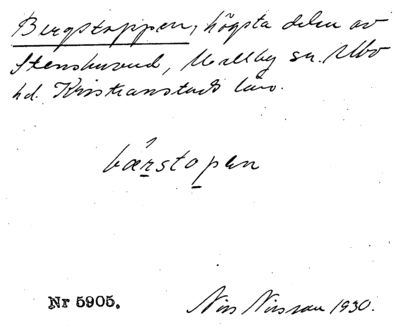 Bergstoppen, högsta delen av
Stenshuvud, Mellby sn. Albo
hd. Kristianstads län.
bærstopen
Nr 5905.
Nils Nilsson 1930.